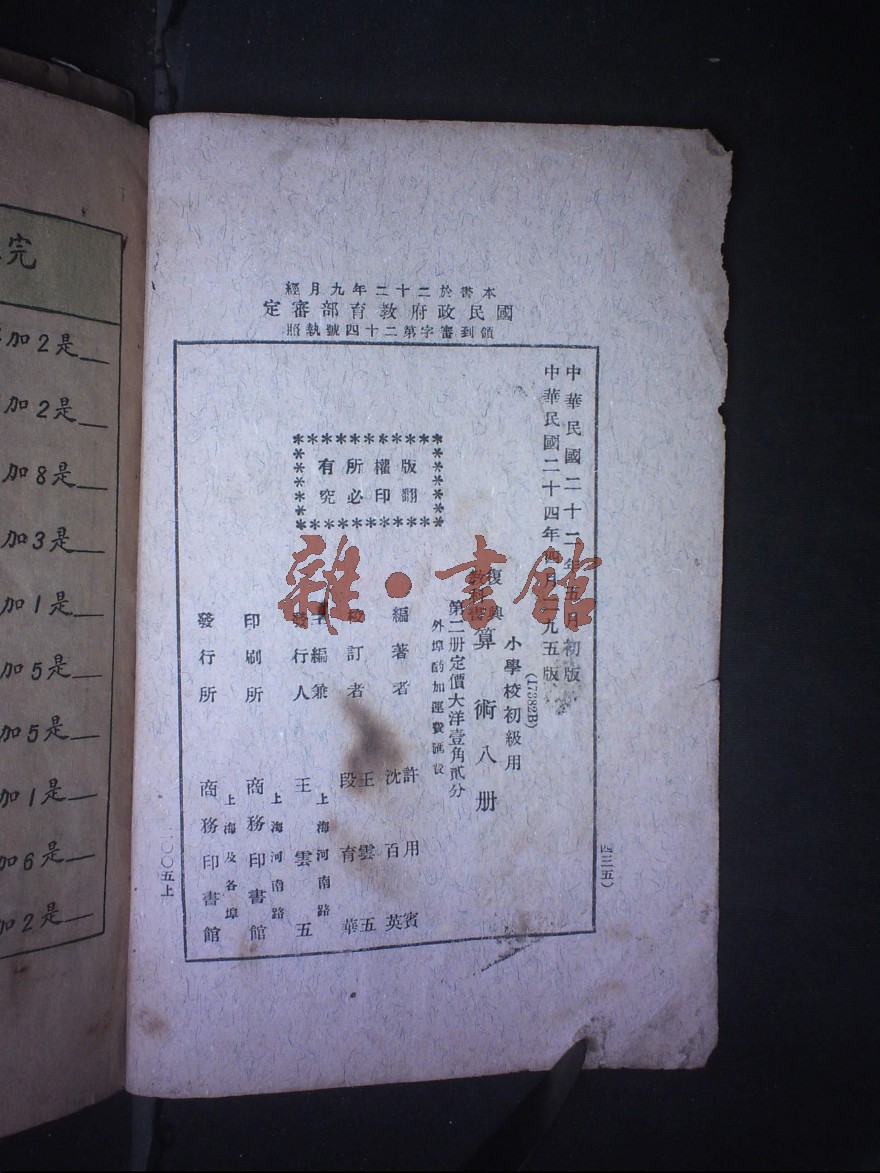 本書於二十二年九月經
國民政府教育部審定
領到審字第二十四號執照
中華民國二十二年五月初版
中華民國二十四年四月一九五版
(17382B)
小學校初級用
復興
教科書
算術八册
第二册定價大洋壹角貳分
外埠酌加運費匯費
版權所有
翻印必究
編著者
許用賓
沈百英
校訂者
王雲五
段育華
主編兼
發行人
上海河南路
王雲五
印刷所
上海河南路
商務印書館
發行所
上海及各埠
商務印書館
四三五)
一〇〇五上
雜·書館
完
加2是__
加2是__
加8是__
加3是__
加1是__
加5是__
加5是__
加1是__
加6是__
加2是__